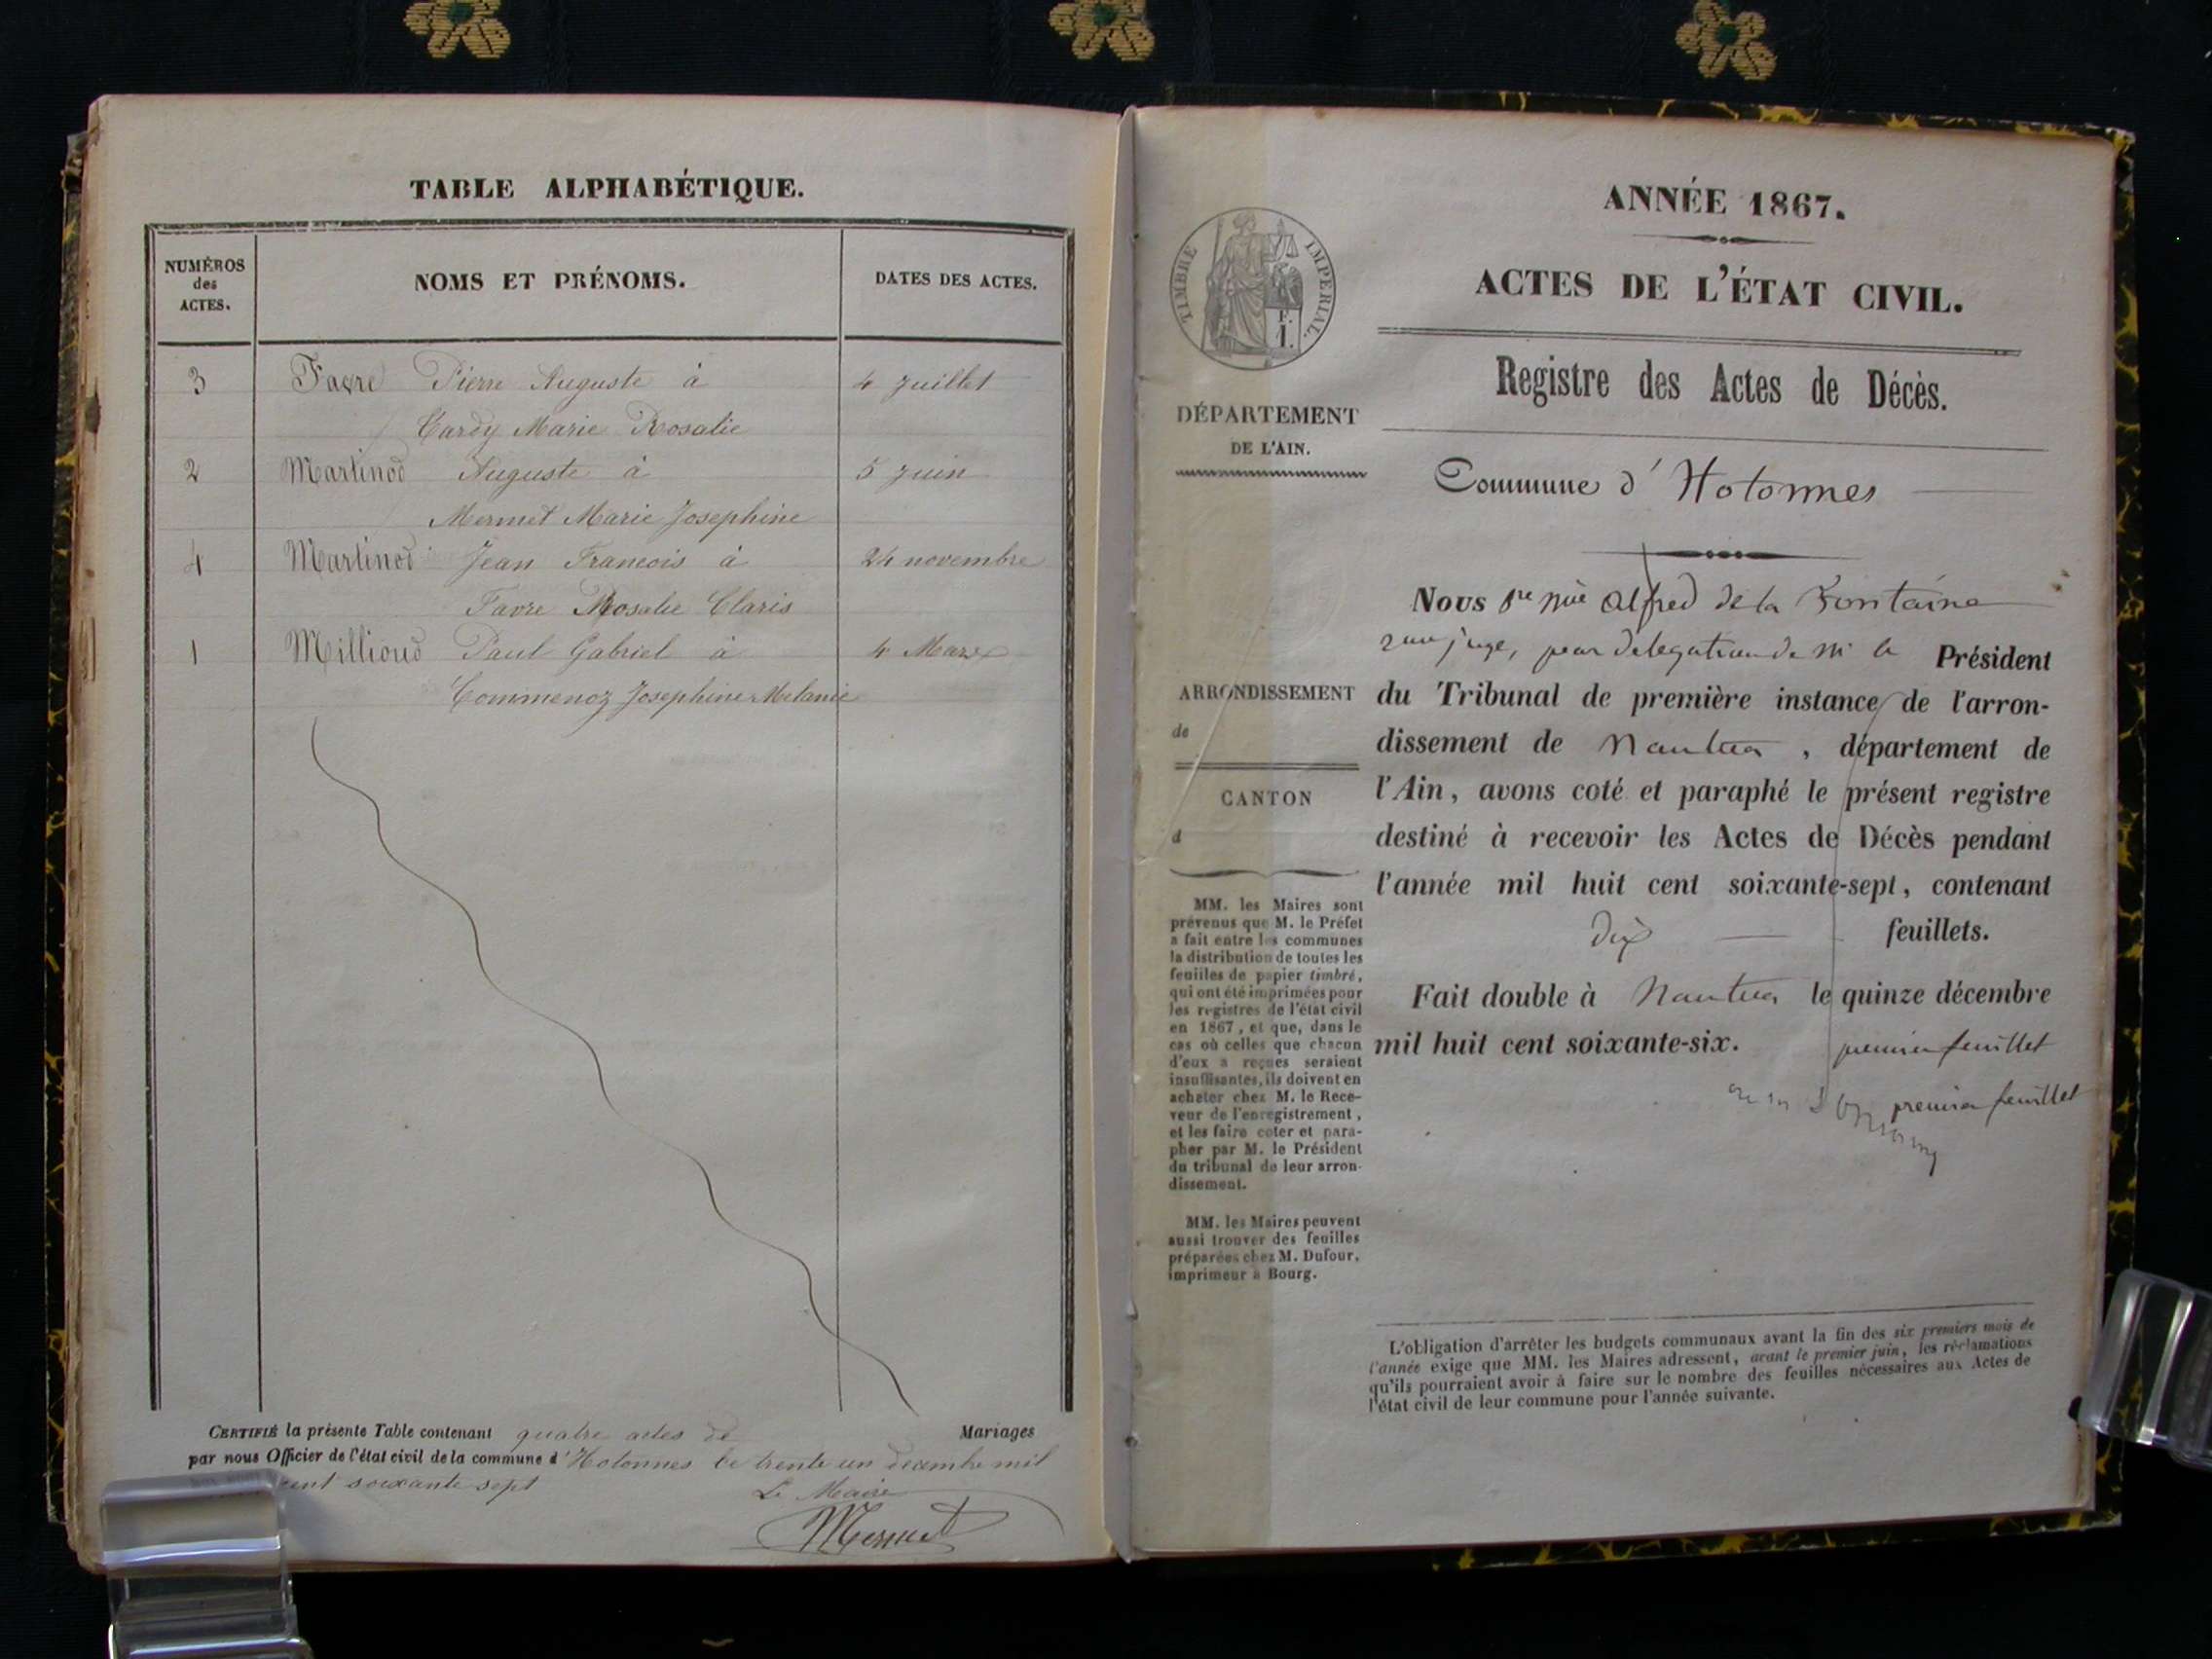 TABLE ALPHABÉTIQUE.
NUMÉROS
des
ACTES.
NOMS ET PRÉNOMS.
DATES DES ACTES.
3 Favre Pierre Auguste à 4 Juillet
Cardy Marie Rosalie
2 Martinod Auguste à 5 Juin
Mermet Marie Josephine
4 Martinod Jean Francois à 24 novembre
Favre Rosalie Claris
1 Millioud Paul Gabriel à 4 Mars
Commenoz Josephine Melanie
CERTIFIÉ la présente Table contenant quatre actes de Mariages
par nous Officier de l'état civil de la commune d'Hotonnes le trente un decembre mil
cent soixante sept
Le Maire
Mermet
TIMBRE IMPERIAL.
F.
1.
DÉPARTEMENT
DE L'AIN.
ARRONDISSEMENT
de
CANTON
d
MM. les Maires sont
prévenus que M. le Préfet
a fait entre les communes
la distribution de toutes les
feuilles de papier timbré,
qui ont été imprimées pour
les registres de l'état civil
en 1867, et que, dans le
cas où celles que chacun
d'eux a reçues seraient
insuffisantes, ils doivent en
acheter chez M. le Rece-
veur de l'enregistrement,
et les faire coter et para-
pher par M. le Président
du tribunal de leur arron-
dissement.
MM. les Maires peuvent
aussi trouver des feuilles
préparées chez M. Dufour,
imprimeur à Bourg.
ANNÉE 1867.
ACTES DE L'ÉTAT CIVIL.
Registre des Actes de Décès.
Commune d'Hotonnes
Nous Alfred de la Fontaine
juge, par délégation de M. le Président
du Tribunal de première instance de l'arron-
dissement de Nantua, département de
l'Ain, avons coté et paraphé le présent registre
destiné à recevoir les Actes de Décès pendant
l'année mil huit cent soixante-sept, contenant
dix feuillets.
Fait double à Nantua le quinze décembre
mil huit cent soixante-six. premier feuillet
premier feuillet
L'obligation d'arrêter les budgets communaux avant la fin des six premiers mois de
l'année exige que MM. les Maires adressent, avant le premier juin, les réclamations
qu'ils pourraient avoir à faire sur le nombre des feuilles nécessaires aux Actes de
l'état civil de leur commune pour l'année suivante.